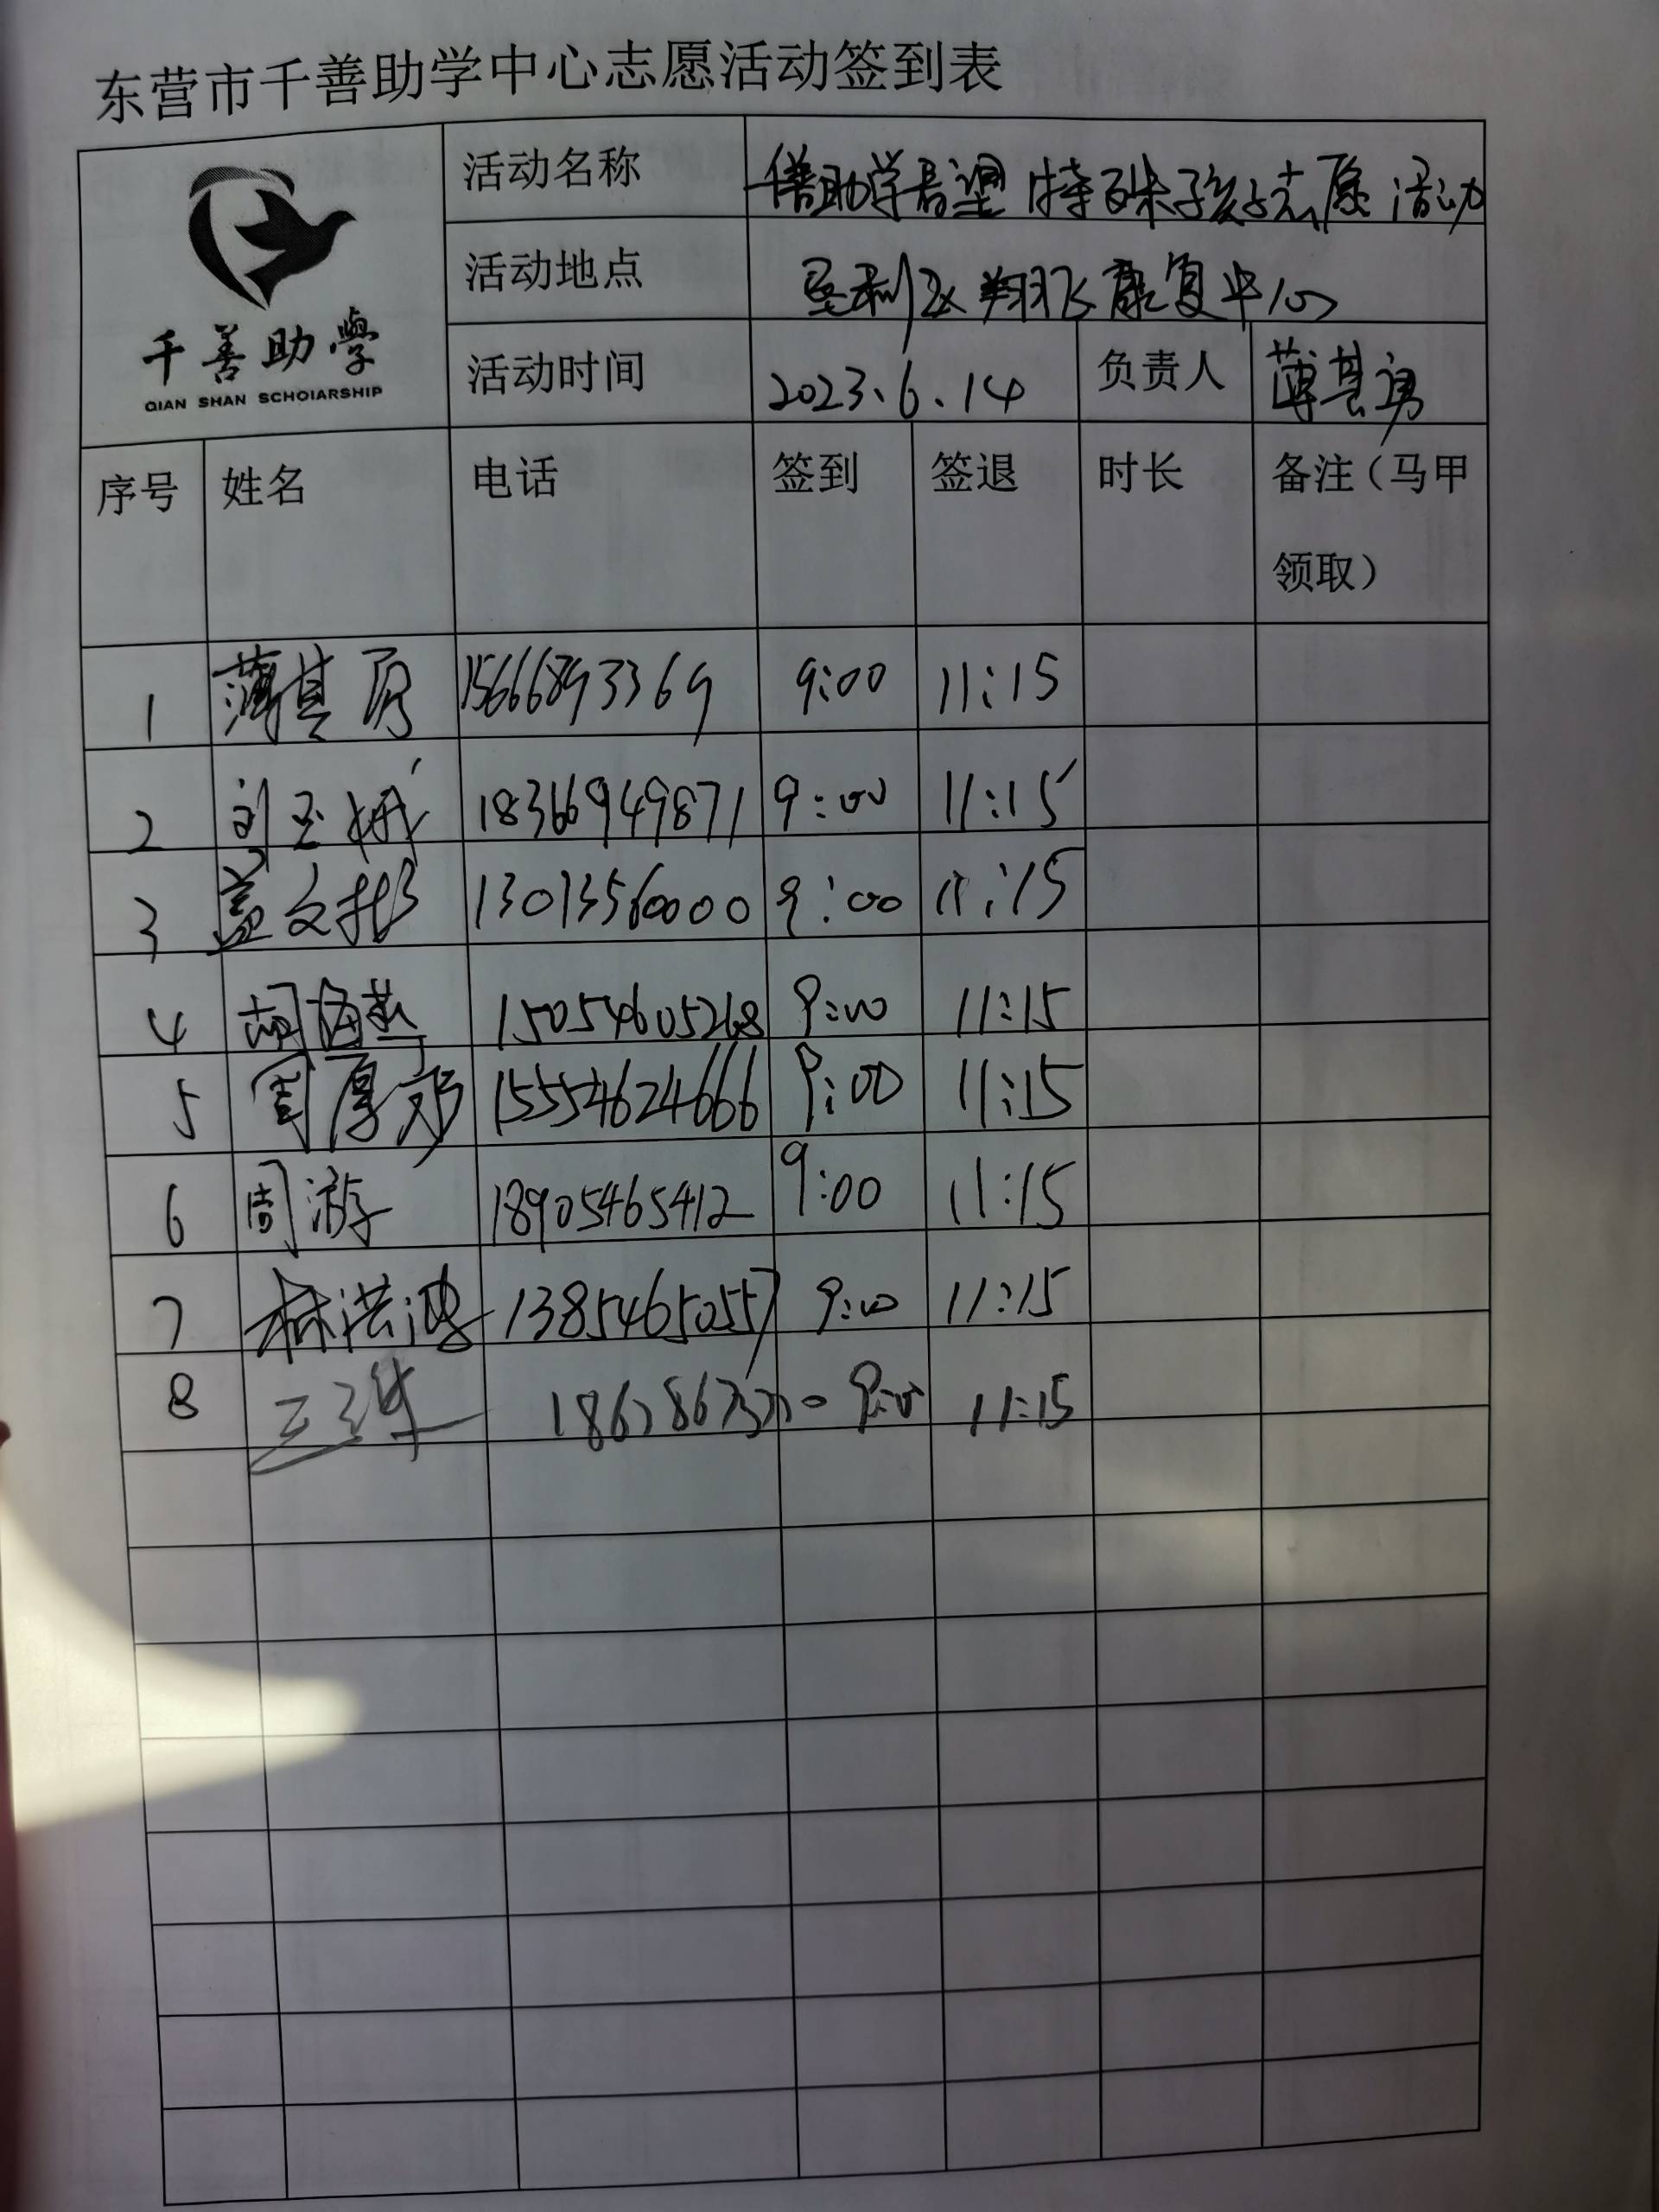 东营市千善助学中心志愿活动签到表
千善助學
QIAN SHAN SCHOIARSHIP
活动名称 善助学希望 特殊孩子志愿活动
活动地点 垦利区翔飞康复中心
活动时间 2023.6.14 负责人 薄其勇
序号 姓名 电话 签到 签退 时长 备注（马甲
领取）
1 薄其勇 15666893369 9:00 11:15
2 刘玉娥 18366949871 9:00 11:15
3 盖文彬 13013560000 9:00 11:15
4 胡海燕 15054605268 9:00 11:15
5 周厚邓 15554624666 9:00 11:15
6 周游 18905465412 9:00 11:15
7 林洪鸿 13854650557 9:00 11:15
8 9:00 11:15